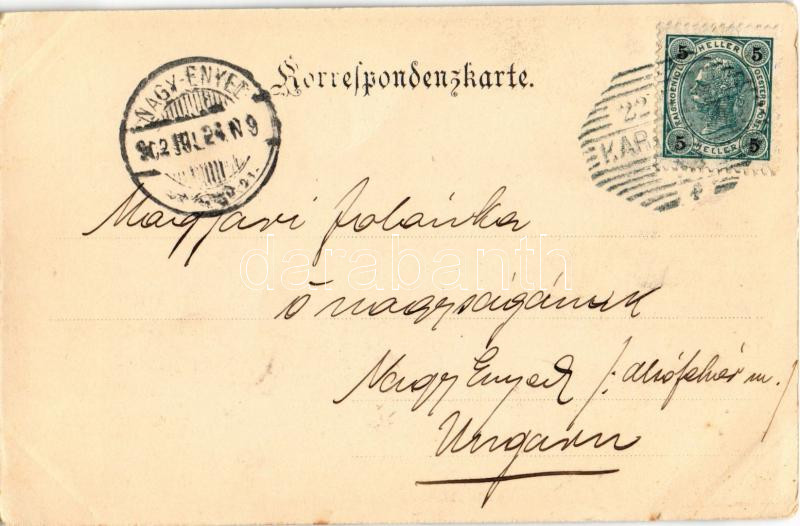 Korrespondenzkarte.
NAGY-ENYED
902 JUL. 24. N 9
5 HELLER 5
5 HELLER 5
22
KAR
4
Magyari Jolánka
ő nagyságának
Nagy Enyed /: Alsófehér m. /
Ungarn
darabanth